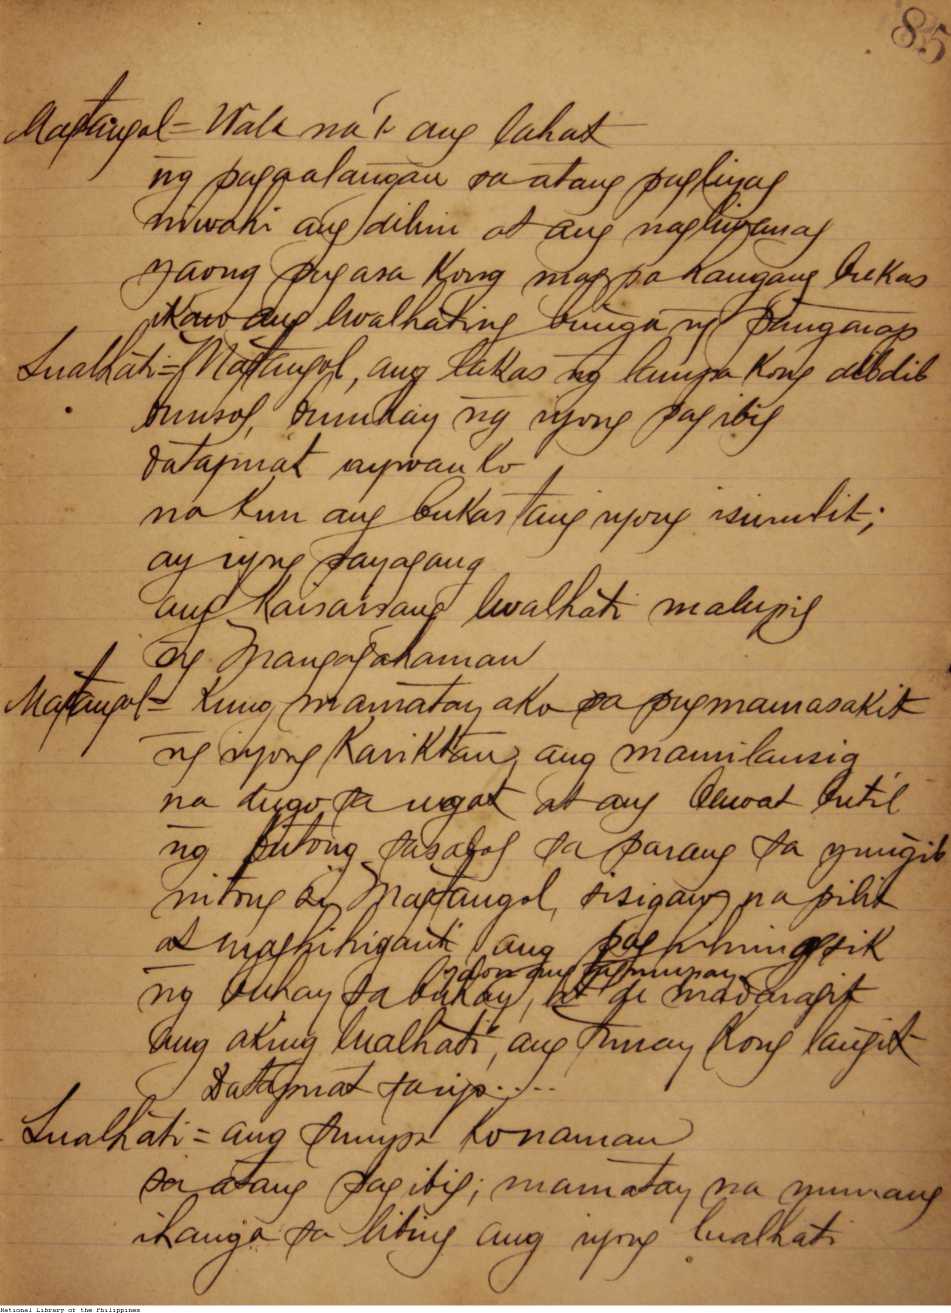 85
Magtangol = Wala na't ang lahat
ng pagaalangan sa atang pagliyag
niwahi ang dilim at ang nagliwanag
yaong pagasa kong magpa kangang bukas
ikaw ang lwalhating bunga ng pangarap
Lualhati = Magtangol, ang lakas ng lampa kong dibdib
sumsol, bumuhay ng iyong pag ibig
datapuat aywan ko
na kun ang bukas ang iyong isinulit;
ay iyong payagang
ang kaisaisang lwalhati malupig
ng Mangagahaman
Magtangol = kung mamatay ako sa pagmamasakit
ng iyong kariktan, ang mamilansig
na dugo sa ugat at ang buwat butil
ng butong sasabog sa parang sa yungib
nitong si Magtangol, sisigaw na pilit
at maghihiganti ang pag
ng buhay sa buhay, at di madaragit
ang aking lualhati, ang tunay kong langit
Datapuat sa iyo....
Lualhati = ang sumpa ko naman
sa atang pag ibig; mamatay na munang
ihanga sa libing ang iyong lualhati
National Library of the Philippines